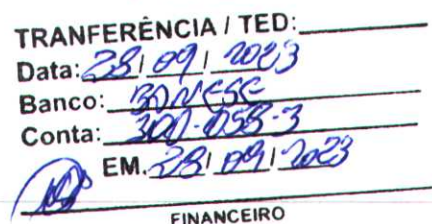 TRANFERÊNCIA / TED:
Data: 28/09/2023
Banco: BANESE
Conta: 300-058-3
EM. 28/09/2023
FINANCEIRO